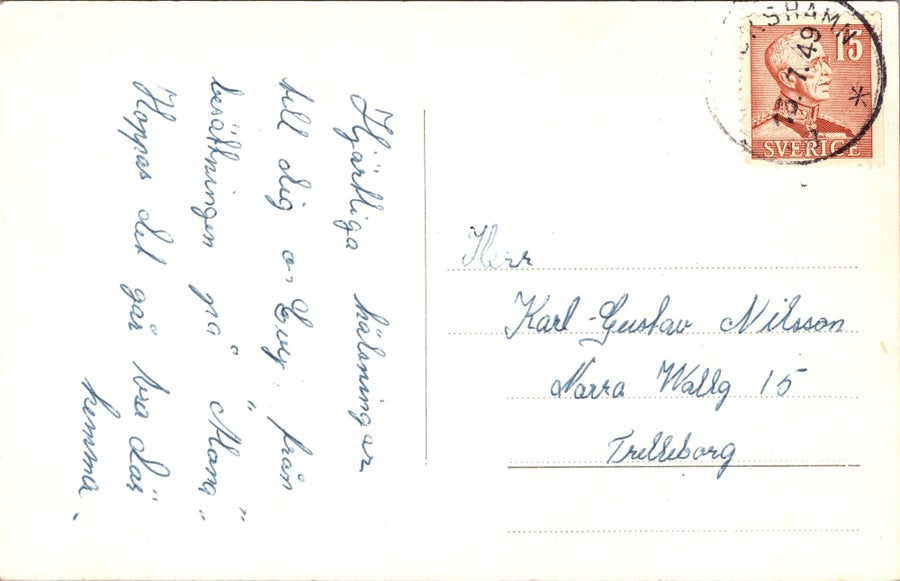 Hjärtliga hälsningar
till dig o. Evy. från
besättningen på "Mona"
Hoppas det går bra där
hemma.
SHAMN
19.7.49
15
SVERIGE
Herr
Karl-Gustav Nilsson
Norra Wallg 15
Trelleborg